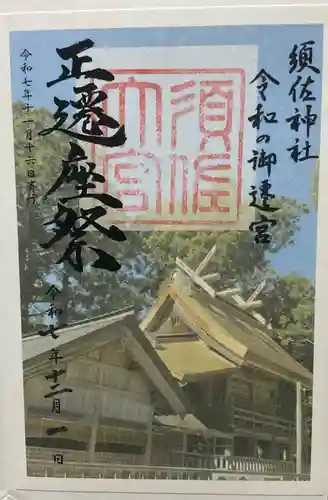 須佐神社
令和の御遷宮
須佐
大宮
正遷座祭
令和七年十一月十六日斎行
令和七年十二月一日